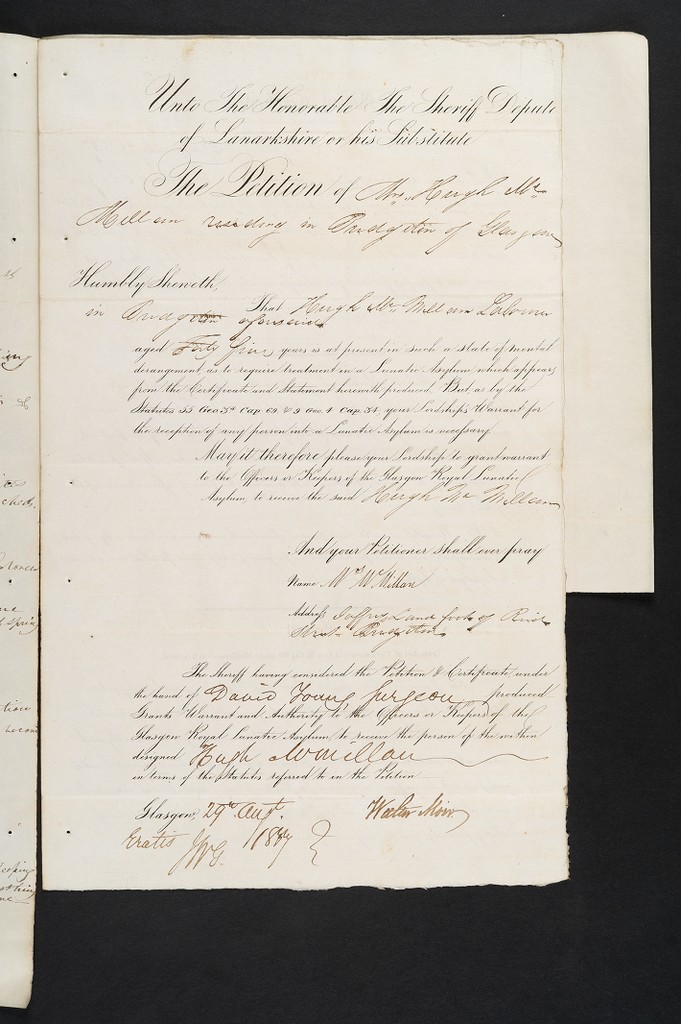 Unto The Honorable The Sheriff Depute
of Lanarkshire or his Substitute
The Petition of Mrs. Hugh Mc
Millan residing in Bridgeton of Glasgow
Humbly Sheweth,
That Hugh Mc Millan Labourer
in Bridgeton aforesaid
aged Forty five years is at present in such a state of mental
derangement, as to require treatment in a Lunatic Asylum, which appears
from the Certificate and Statement herewith produced. But as by the
Statutes 55 Geo. 3d Cap. 69. & 9 Geo. 4 Cap. 34, your Lordship's Warrant for
the reception of any person into a Lunatic Asylum is necessary.
May it therefore please your Lordship to grant warrant
to the Officers or Keepers of the Glasgow Royal Lunatic
Asylum, to receive the said Hugh Mc Millan
And your Petitioner shall ever pray
Name. Mrs McMillan
Address Land foot of
Street Bridgeton
The Sheriff having considered the Petition & Certificate under
the hand of David Young Surgeon produced
Grants Warrant and Authority to the Officers or Keepers of the
Glasgow Royal Lunatic Asylum to receive the person of the within
designed Hugh McMillan
in terms of the Statutes referred to in the Petition
Glasgow, 29th Augt. Walter Moir
Gratis